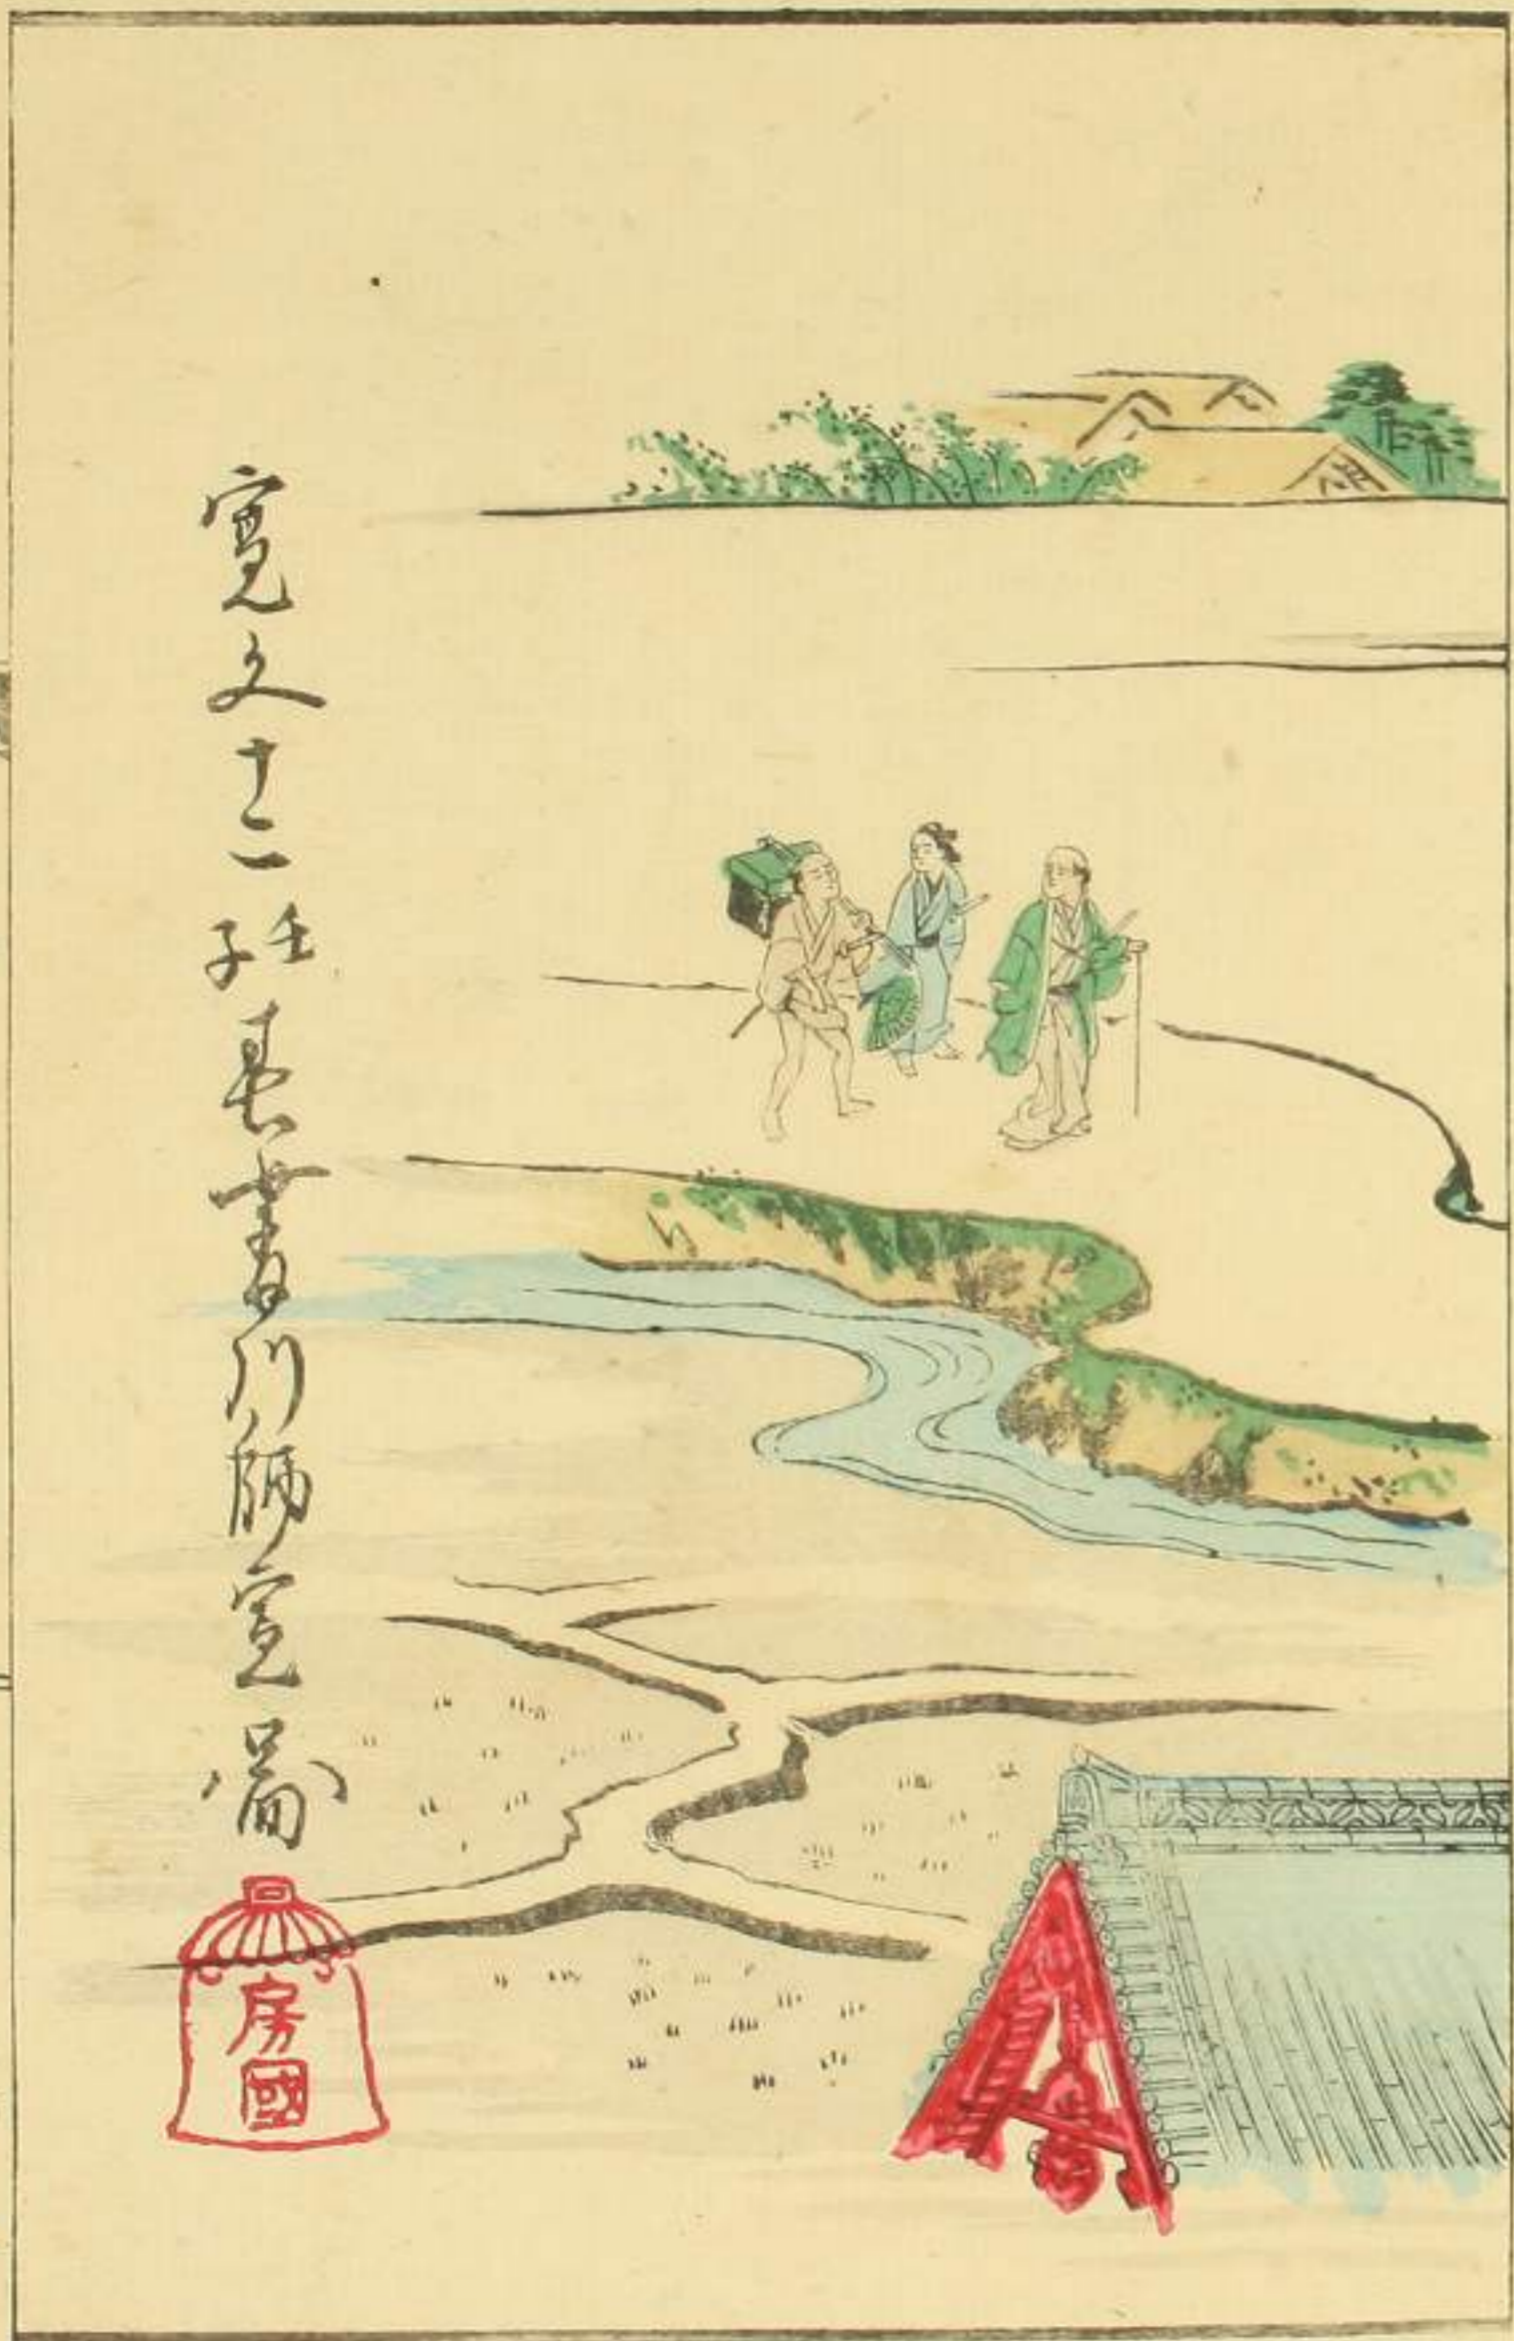 寛文十二壬子春菱川師宣圖
房國